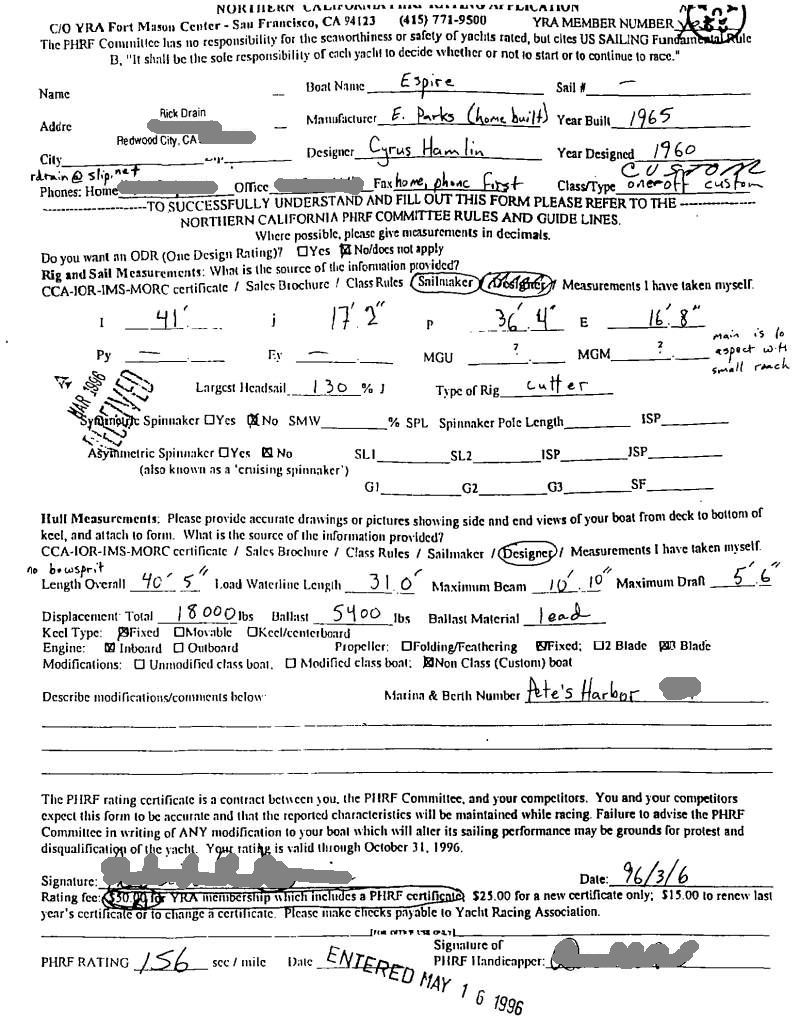 NORTHERN CALIFORNIA PHRF RATING APPLICATION
C/O YRA Fort Mason Center - San Francisco, CA 94123 (415) 771-9500 YRA MEMBER NUMBER yes
The PHRF Committee has no responsibility for the seaworthiness or safety of yachts rated, but cites US SAILING Fundamental Rule
B, "It shall be the sole responsibility of each yacht to decide whether or not to start or to continue to race."
Name Rick Drain Boat Name Espire Sail # —
Addre Manufacturer E. Parks (home built) Year Built 1965
Redwood City, CA
City Designer Cyrus Hamlin Year Designed 1960
rdrain@slip.net CUSTOM
Phones: Home Office Fax home, phone first Class/Type one-off custom
TO SUCCESSFULLY UNDERSTAND AND FILL OUT THIS FORM PLEASE REFER TO THE
NORTHERN CALIFORNIA PHRF COMMITTEE RULES AND GUIDE LINES.
Where possible, please give measurements in decimals.
Do you want an ODR (One Design Rating)? ☐Yes ☒No/does not apply
Rig and Sail Measurements: What is the source of the information provided?
CCA-IOR-IMS-MORC certificate / Sales Brochure / Class Rules / Sailmaker / Designer / Measurements I have taken myself.
I 41' j 17' 2" P 36' 4" E 16' 8"
Py — Ey — MGU ? MGM ?
main is
aspect with
small roach
Largest Headsail 130 % J Type of Rig cutter
MAR 1996
RECEIVED
Symmetric Spinnaker ☐Yes ☒No SMW % SPL Spinnaker Pole Length ISP
Asymmetric Spinnaker ☐Yes ☒ No SL1 SL2 ISP JSP
(also known as a 'cruising spinnaker')
G1 G2 G3 SF
Hull Measurements: Please provide accurate drawings or pictures showing side and end views of your boat from deck to bottom of
keel, and attach to form. What is the source of the information provided?
CCA-IOR-IMS-MORC certificate / Sales Brochure / Class Rules / Sailmaker / Designer / Measurements I have taken myself.
no bowsprit
Length Overall 40' 5" Load Waterline Length 31.0' Maximum Beam 10' 10" Maximum Draft 5' 6"
Displacement Total 18000 lbs Ballast 5400 lbs Ballast Material lead
Keel Type: ☒Fixed ☐Movable ☐Keel/centerboard
Engine: ☒ Inboard ☐ Outboard Propeller: ☐Folding/Feathering ☒Fixed; ☐2 Blade ☒3 Blade
Modifications: ☐ Unmodified class boat, ☐ Modified class boat; ☒Non Class (Custom) boat
Describe modifications/comments below Marina & Berth Number Pete's Harbor
The PHRF rating certificate is a contract between you, the PHRF Committee, and your competitors. You and your competitors
expect this form to be accurate and that the reported characteristics will be maintained while racing. Failure to advise the PHRF
Committee in writing of ANY modification to your boat which will alter its sailing performance may be grounds for protest and
disqualification of the yacht. Your rating is valid through October 31, 1996.
Signature: Date: 96/3/6
Rating fee: $50.00 for YRA membership which includes a PHRF certificate; $25.00 for a new certificate only; $15.00 to renew last
year's certificate or to change a certificate. Please make checks payable to Yacht Racing Association.
[FOR OFFICE USE ONLY]
PHRF RATING 156 sec / mile Date ENTERED MAY 16 1996 Signature of
PHRF Handicapper: